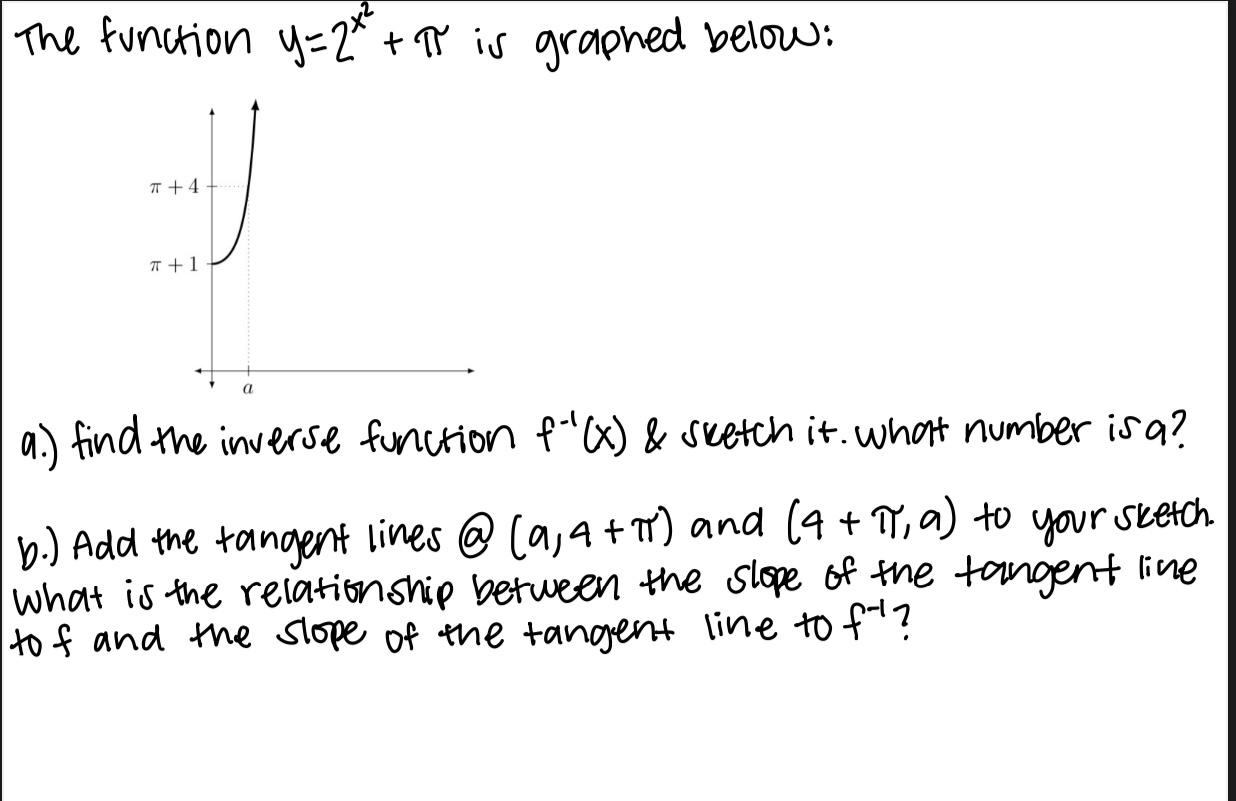 The function y=2^x^2 + π is graphed below:
π + 4
π + 1
a
a.) find the inverse function f^-1(x) & sketch it. what number is a?
b.) Add the tangent lines @ (a, 4 + π) and (4 + π, a) to your sketch.
what is the relationship between the slope of the tangent line
to f and the slope of the tangent line to f^-1?